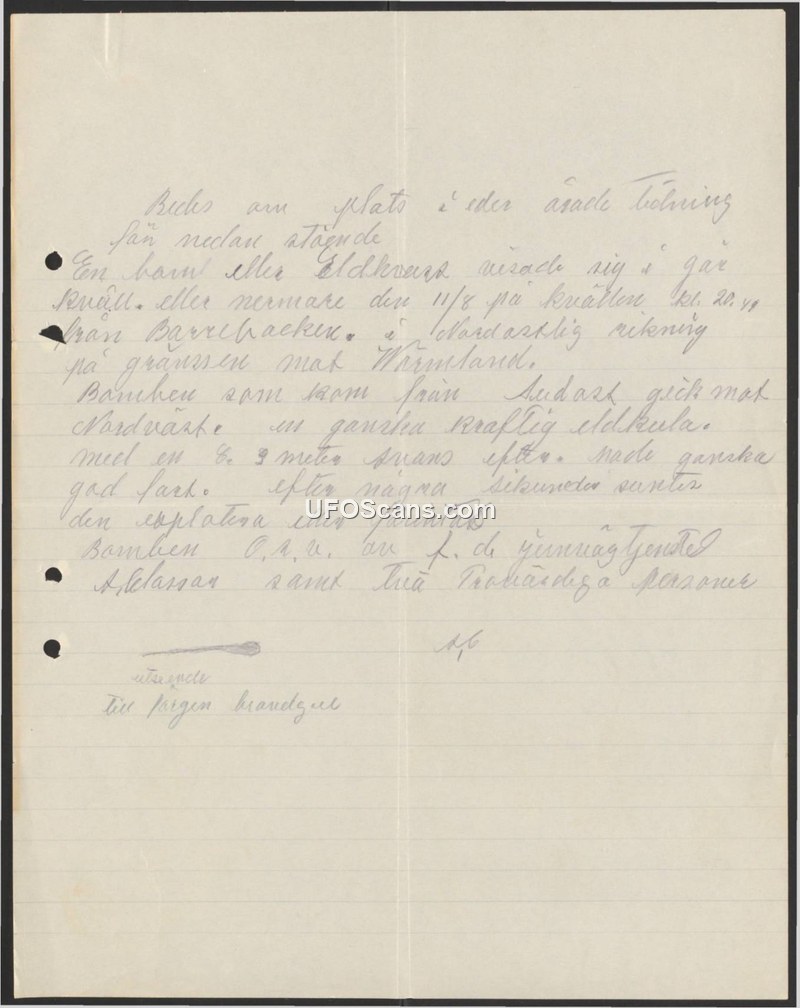 Bedes om plats i eder ärade tidning
för nedan stående
En bomb eller Eldkvast visade sig i går
kväll. eller nermare den 11/8 på kvällen kl. 20.
från Barrebacken. i Nordostlig rikning
på gränssen mot Wärmland.
Bomben som kom från Sudost gick mot
Nordväst. en ganska kraftig eldkula.
med en meter svans efter. hade ganska
god fart. efter några sikunder
den explotera eller
UFOScans.com
Bomben av f. de
samt två Trovärdiga Personer
utseende
till färgen brandgul